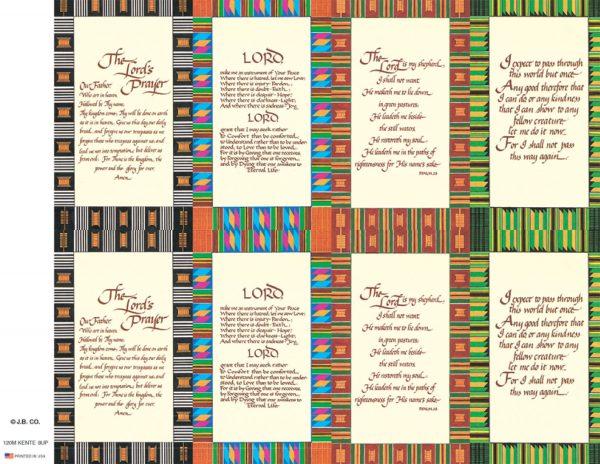 The
Lord's
Prayer
Our Father
Who art in heaven,
Hallowed be Thy name.
Thy kingdom come. Thy will be done on earth
as it is in heaven. Give us this day our daily
bread, and forgive us our trespasses as we
forgive those who trespass against us and
lead us not into temptation, but deliver us
from evil. For Thine is the kingdom, the
power and the glory for ever.
Amen.
LORD
make me an instrument of Your Peace
Where there is hatred, let me sow Love;
Where there is injury~Pardon;
Where there is doubt~Faith;
Where there is despair~Hope;
Where there is darkness~Light;
And where there is sadness~Joy.
LORD
grant that I may seek rather
to Comfort than be comforted,
to Understand rather than to be under-
stood, to Love than to be loved...
For it is by Giving that one receives,
by forgiving that one is forgiven...
and by Dying that one awakens to
Eternal Life~
The
Lord is my shepherd,
I shall not want:
He maketh me to lie down
in green pastures:
He leadeth me beside~
the still waters.
He restoreth my soul:
He leadeth me in the paths of
righteousness for His name's sake~
PSALM 23
I expect to pass through
this world but once.
Any good therefore that
I can do or any kindness
that I can show to any
fellow creature
let me do it now.
For I shall not pass
this way again.
The
Lord's
Prayer
Our Father
Who art in heaven,
Hallowed be Thy name.
Thy kingdom come. Thy will be done on earth
as it is in heaven. Give us this day our daily
bread, and forgive us our trespasses as we
forgive those who trespass against us and
lead us not into temptation, but deliver us
from evil. For Thine is the kingdom, the
power and the glory for ever.
Amen.
LORD
make me an instrument of Your Peace
Where there is hatred, let me sow Love;
Where there is injury~Pardon;
Where there is doubt~Faith;
Where there is despair~Hope;
Where there is darkness~Light;
And where there is sadness~Joy.
LORD
grant that I may seek rather
to Comfort than be comforted,
to Understand rather than to be under-
stood, to Love than to be loved...
For it is by Giving that one receives,
by forgiving that one is forgiven...
and by Dying that one awakens to
Eternal Life~
The
Lord is my shepherd,
I shall not want:
He maketh me to lie down
in green pastures:
He leadeth me beside~
the still waters.
He restoreth my soul:
He leadeth me in the paths of
righteousness for His name's sake~
PSALM 23
I expect to pass through
this world but once.
Any good therefore that
I can do or any kindness
that I can show to any
fellow creature
let me do it now.
For I shall not pass
this way again.
© J.B. CO.
120M KENTE 8UP
PRINTED IN USA